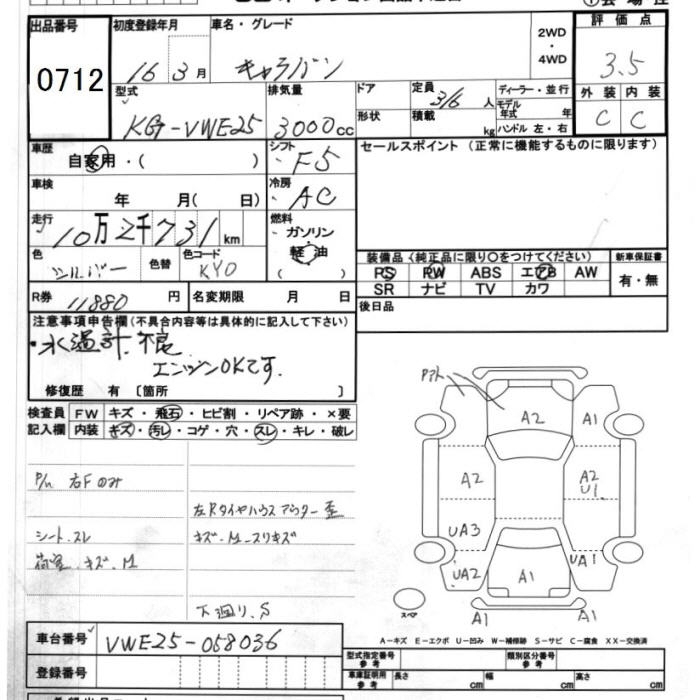 出品番号
0712
初度登録年月
16 3月
車名・グレード
キャラバン
2WD
・
4WD
評価点
3.5
外装 内装
C C
型式
KG-VWE25
排気量
3000cc
ドア
形状
定員
3/6人
積載
kg
ディーラー・並行
モデル年式 年
ハンドル 左・右
車歴
自家用・( )
シフト
F5
セールスポイント (正常に機能するものに限ります)
車検
年 月( 日)
冷房
AC
走行
10万2千731km
燃料
ガソリン
軽油
( )
色
シルバー
色替
色コード
KY0
装備品 (純正品に限り〇をつけてください)
PS PW ABS エアB AW
SR ナビ TV カワ
新車保証書
有・無
R券
11880円
名変期限 月 日
後日品
注意事項申告欄(不具合内容等は具体的に記入して下さい)
・水温計不良
エンジンOKです.
修復歴 有 〔箇所 〕
検査員
記入欄
FW キズ・飛石・ヒビ割・リペア跡・×要
内装 キズ・汚レ・コゲ・穴・スレ・キレ・破レ
P/W 右Fのみ
左Rタイヤハウスアウター歪
シート.スレ
キズ.M.スリキズ
荷室.キズ.M
下廻り.S
A2
A1
A2
A2
U1
UA3
UA2
UA1
A1
A1
A1
スペア
A-キズ E-エクボ U-凹み W-補修跡 S-サビ C-腐食 XX-交換済
車台番号
VWE25-058036
登録番号
型式指定番号
参考
類別区分番号
参考
車庫証明用
参考
長さ cm
幅 cm
高さ cm